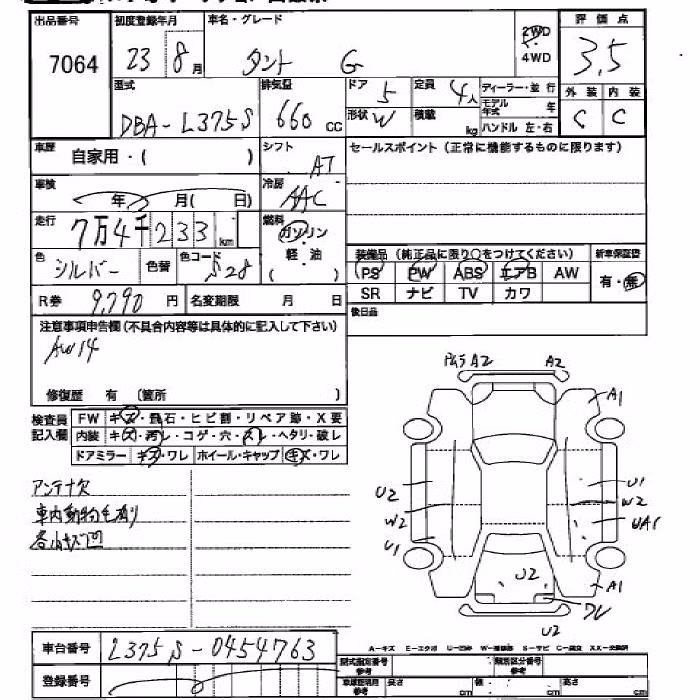 出品番号 初度登録年月 車名・グレード 2WD 4WD 評価点
7064 23 8月 タント G 3.5
型式 DBA-L375S 排気量 660cc ドア 5 形状 W 定員 4人 積載 kg ディーラー・並行 モデル年式 年 ハンドル 左・右 外装 内装 C C
車歴 自家用・( ) シフト AT セールスポイント (正常に機能するものに限ります)
車検 年 月( 日) 冷房 AAC
走行 7万4千233km 燃料 ガソリン 軽・油 ( )
色 シルバー 色替 色コード S28 装備品 (純正品に限り○をつけてください) 新車保証書
PS PW ABS エアB AW 有・無
R券 9,790円 名変期限 月 日 SR ナビ TV カワ
注意事項申告欄 (不具合内容等は具体的に記入して下さい) 後日品
AW14
修復歴 有 (箇所 )
検査員記入欄 FW キズ・飛石・ヒビ割・リペア跡・X要
内装 キズ・汚レ・コゲ・穴・スレ・ヘタリ・破レ
ドアミラー キズ・ワレ ホイール・キャップ キズ・ワレ
アンテナ欠
車内動物毛有り
各小キズ凹
A2 A2
A1
U2 U1
W2 W2
U1
U2 A1
U2
A-キズ E-エクボ U-凹
車台番号 L375S-0454763
登録番号
型式指定番号 類別区分番号
長さ cm 幅 cm 高さ cm